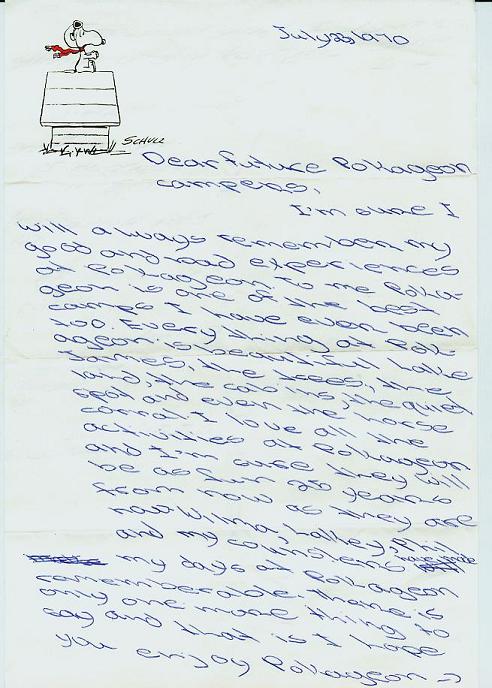 July 23, 1970
SCHULZ
Dear future Pokageon
campers,
I'm sure I
will always remember my
good and bad experiences
at Pokageon. To me Poka-
geon is one of the best
camps I have even been
too. Every thing at Pok-
ageon is beautiful, Lake
James, the trees, the
land, the cabins, the quiet
spot and even the horse
corral. I love all the
activities at Pokageon
and I'm sure they will
be as fun 25 years
from now as they are
now. Wilma, Lalley, Phil
and my counslers have made
my days at Pokageon
rememberable. There is
only one more thing to
say and that is I hope
you enjoy Pokageon →